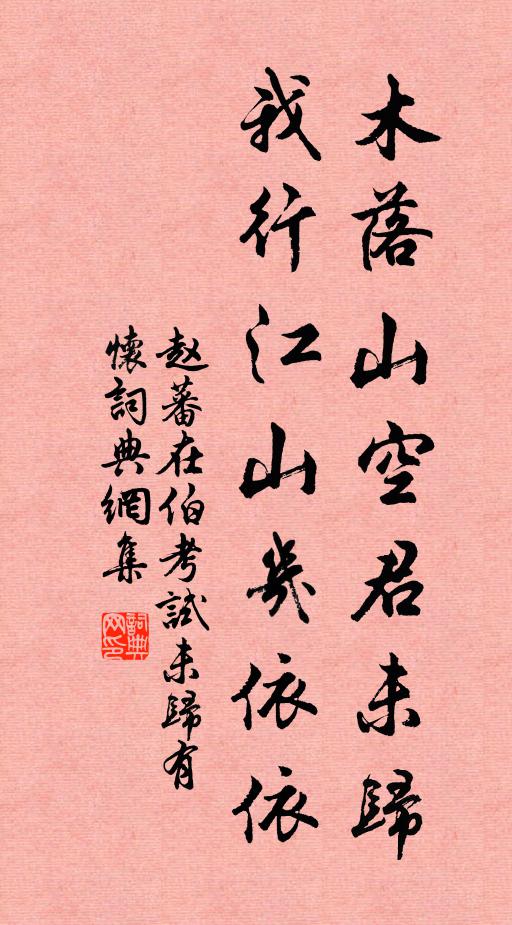 木落山空君未歸
我行江山幾依依
赵蕃在伯考試未歸有
懷詞典網集
詞典
网印